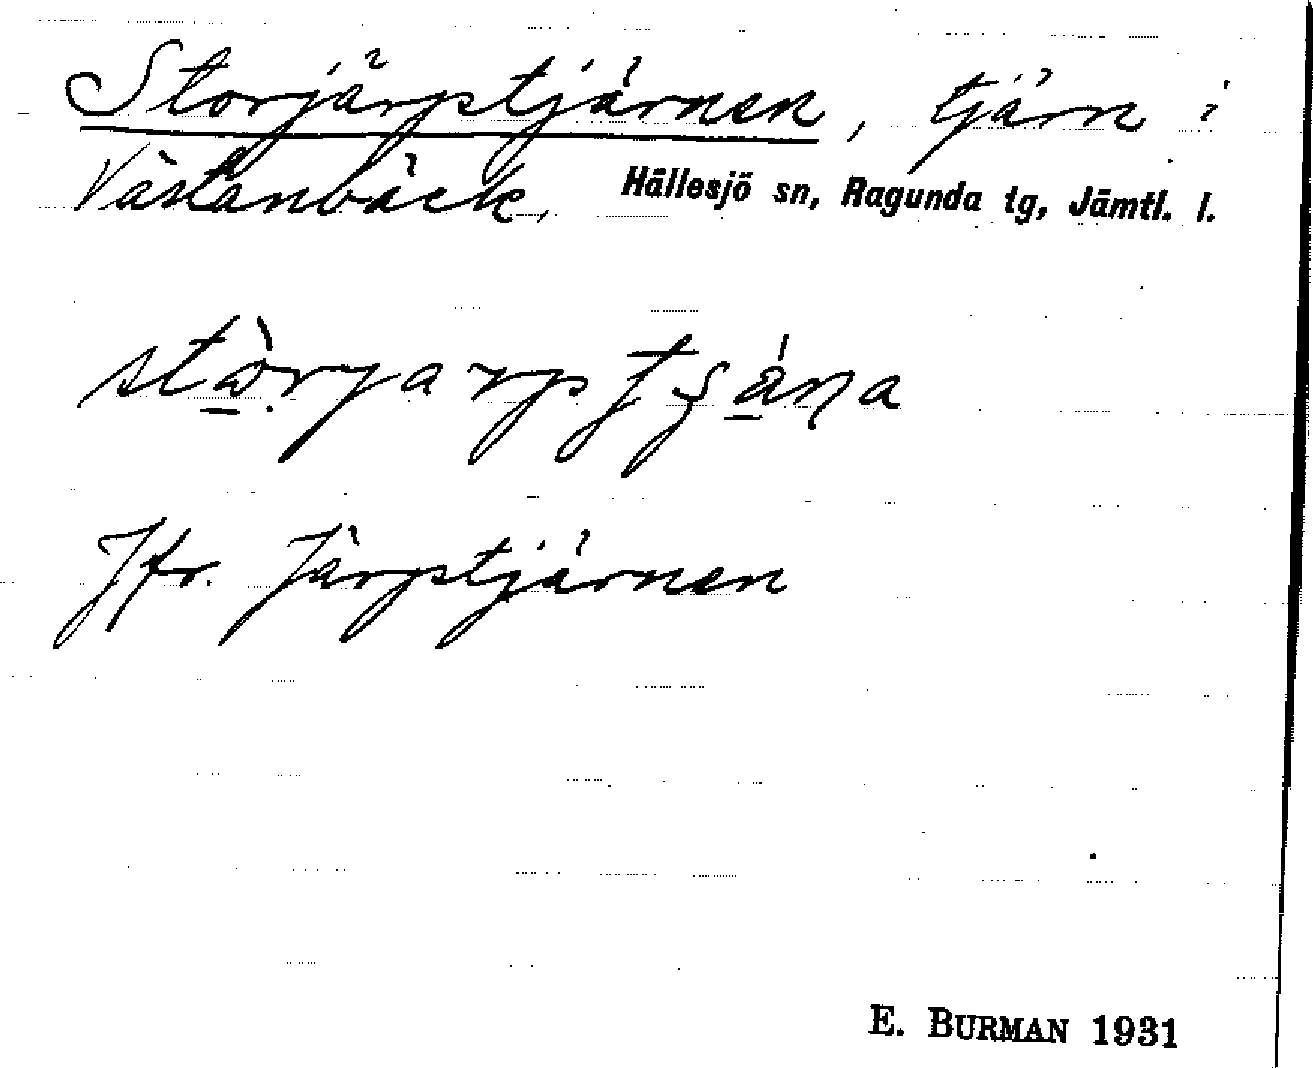 Storjärptjärnen, tjärn i
Västanbäck, Hällesjö sn, Ragunda tg, Jämtl. l.
Jfr. Järptjärnen
E. BURMAN 1931